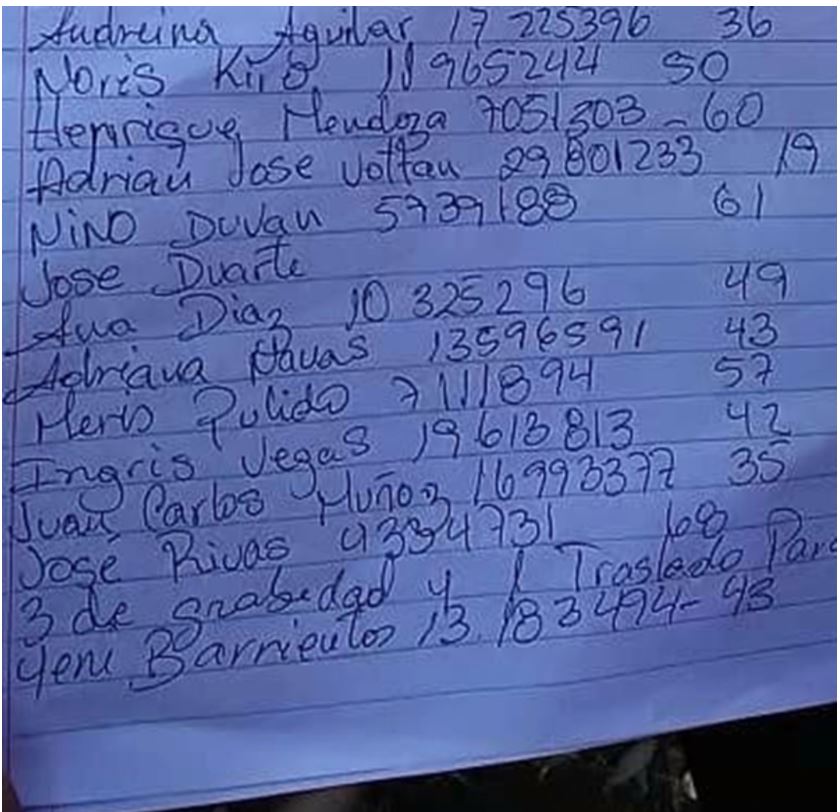 Andreina Aguilar 17 225396 36
Noris Kiro 11 965244 50
Henrique Mendoza 7051303 - 60
Adrian Jose Vottan 29 801233 19
NiNO DUVAN 5939188 61
Jose Duarte
Ana Diaz 10 325296 49
Adriana Navas 13596591 43
Meris Pulido 7111894 57
Ingris Vegas 19613813 42
Juan Carlos Muñoz 16993377 35
José Rivas 4334731 68
3 de grabedad y 1 Traslado Para
Yeni Barrientos 13.183494-43